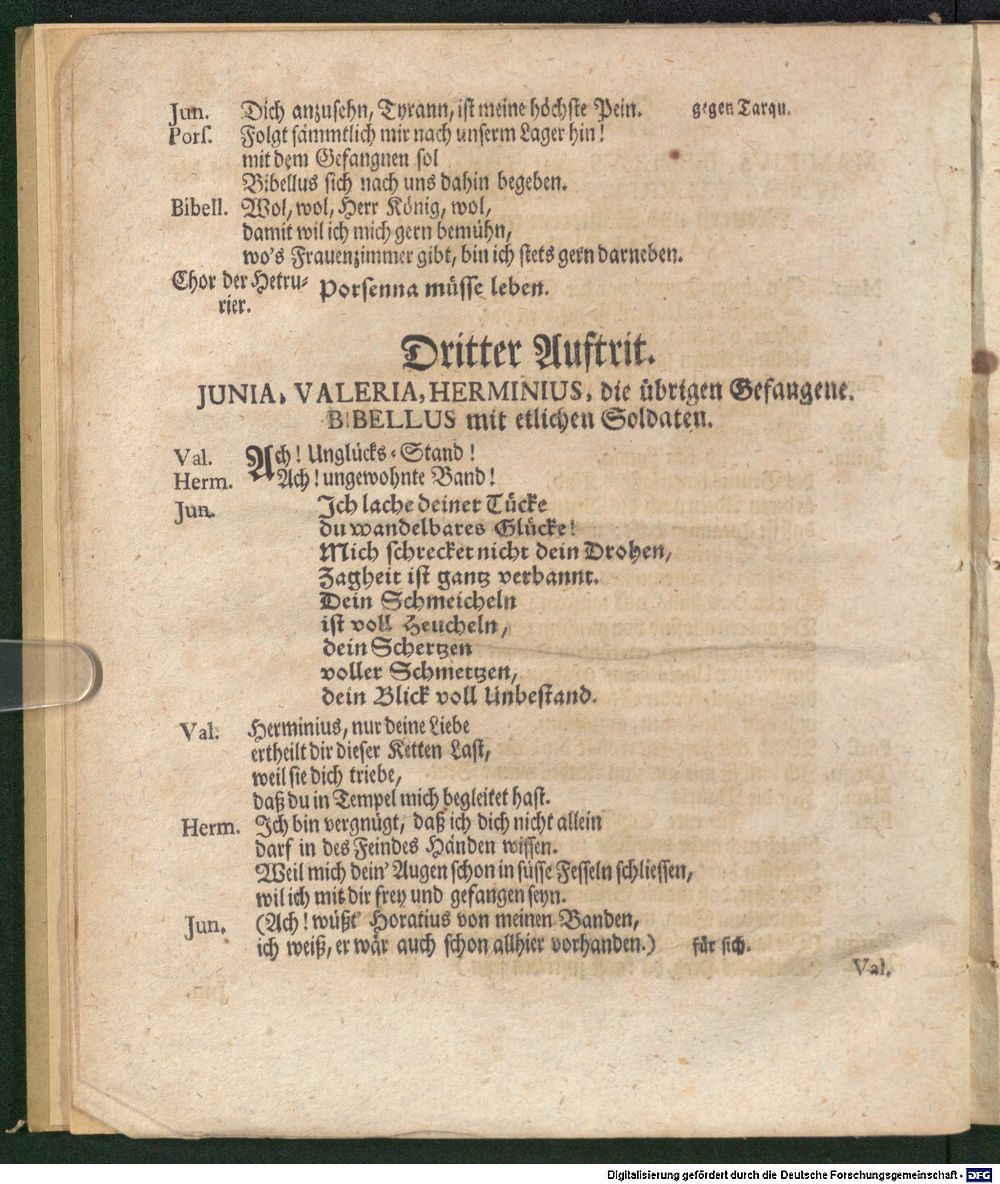 Jun. Dich anzusehn, Tyrann, ist meine höchste Pein. gegen Tarqu.
Pors. Folgt sämmtlich mir nach unserm Lager hin!
mit dem Gefangnen sol
Bibellus sich nach uns dahin begeben.
Bibell. Wol, wol, Herr König, wol,
damit wil ich mich gern bemühn,
wo's Frauenzimmer gibt, bin ich stets gern darneben.
Chor der Hetru-
rier. Porsenna müsse leben.
Dritter Auftrit.
JUNIA, VALERIA, HERMINIUS, die übrigen Gefangene.
BIBELLUS mit etlichen Soldaten.
Val. Ach! Unglücks-Stand!
Herm. Ach! ungewohnte Band!
Jun. Ich lache deiner Tücke
du wandelbares Glücke!
Mich schrecket nicht dein Drohen,
Zagheit ist gantz verbannt.
Dein Schmeicheln
ist voll Heucheln,
dein Schertzen
voller Schmertzen,
dein Blick voll Unbestand.
Val. Herminius, nur deine Liebe
ertheilt dir dieser Ketten Last,
weil sie dich triebe,
daß du in Tempel mich begleitet hast.
Herm. Ich bin vergnügt, daß ich dich nicht allein
darf in des Feindes Händen wissen.
Weil mich dein' Augen schon in süsse Fesseln schliessen,
wil ich mit dir frey und gefangen seyn.
Jun. (Ach! wüßt' Horatius von meinen Banden,
ich weiß, er wär auch schon allhier vorhanden.) für sich.
Val.
Digitalisierung gefördert durch die Deutsche Forschungsgemeinschaft - DFG